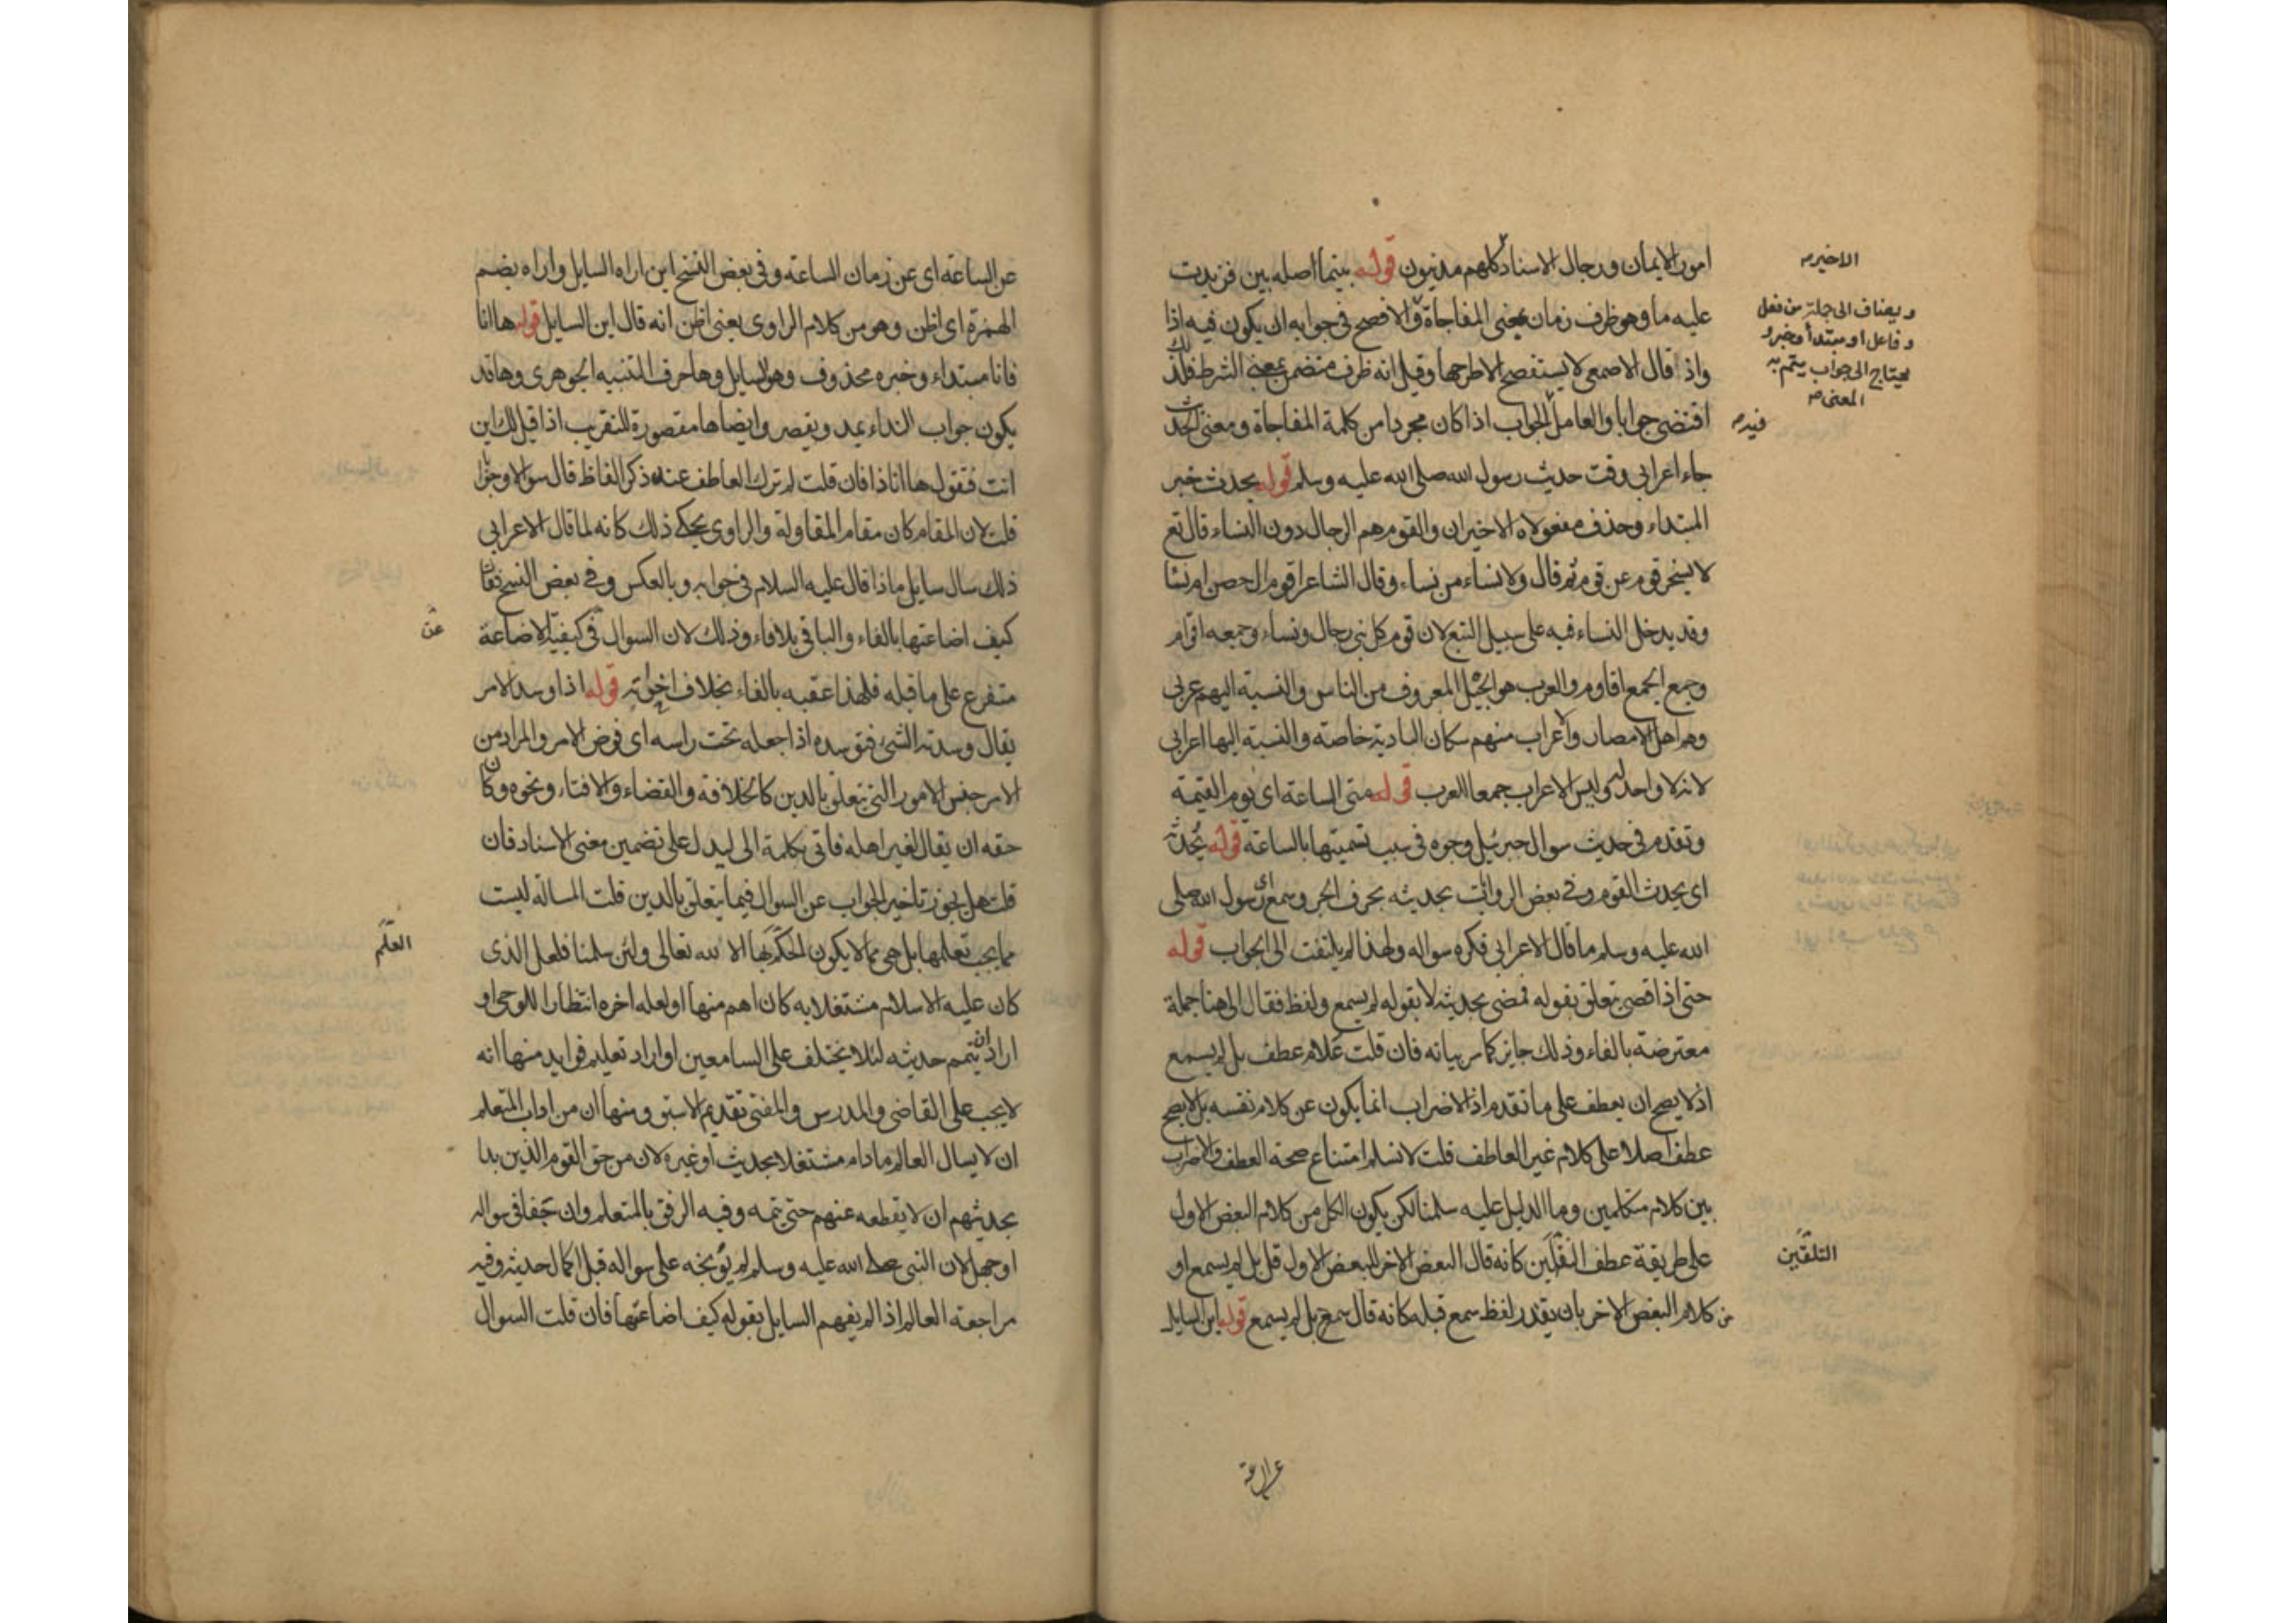 امور الايمان ورجال الاسناد كلهم مدنيون قوله بينما اصله بين فزيدت
عليه ما وهو ظرف زمان بمعنى المفاجاة والافصح في جوابه ان يكون فيه اذا
واذ قال الاصمعي لا يستفصح الا طرحها وقيل انه ظرف متضمن بمعنى الشرط فلذلك
اقتضى جوابا والعامل الجواب اذا كان مجردا من كلمة المفاجاة ومعنى الحديث
جاء اعرابي وقت حديث رسول الله صلى الله عليه وسلم قوله يحدث خبر
المبتداء وحذف مفعولاه الاخيران والقوم هم الرجال دون النساء قال تع
لا يسخر قوم عن قوم ثم قال ولا نساء من نساء وقال الشاعر اقوم ال حصن ام نسا
وقد يدخل النساء فيه على سبيل التبع لان قوم كل نبي رجال ونساء وجمعه اقوام
وجمع الجمع اقاوم والعرب هو الجيل المعروف من الناس والنسبة اليهم عربي
وهم اهل الامصار والاعراب منهم سكان البادية خاصة والنسبة اليها اعرابي
لانه لا واحد له وليس الاعراب جمعا للعرب قوله متى الساعة اى يوم القيمة
وتقدم في حديث سوال جبرئيل وجوه في سبب تسميتها بالساعة قوله يحدثه
اى يحدث القوم وفي بعض الروايات بحديثه بحرف الجر وسمع اى رسول الله صلى
الله عليه وسلم ما قال الاعرابي فكره سواله ولهذا لم يلتفت الى الجواب قوله
حتى اذا قضى تعلق بقوله فمضى بحديثه لا بقوله لم يسمع ولفظ فقال الى هنا جملة
معترضة بالفاء وذلك جايز كما مر بيانه فان قلت علام عطف بل لم يسمع
اذ لا يصح ان يعطف على ما تقدم اذ الاضراب انما يكون عن كلام نفسه بل لا يصح
عطف اصلا على كلام غير العاطف قلت لا نسلم امتناع صحة العطف والاضراب
بين كلام متكلمين وما الدليل عليه سلمنا لكن يكون الكل من كلام البعض الاول
على طريقة عطف التلقين كانه قال البعض الاخر للبعض الاول قل بل لم يسمع او
من كلام البعض الاخر بان يقدر لفظ سمع قبله كانه قال سمع بل لم يسمع قوله اين السايل
الاخير
ويضاف الى جملة من فعل
وفاعل او مبتدأ وخبر و
يحتاج الى جواب يتم به
المعنى
فيه
التلقين
عن الساعة اى عن زمان الساعة وفي بعض النسخ اين اراه السايل واراه بضم
الهمزة اى اظن وهو من كلام الراوى يعنى اظن انه قال اين السايل قوله ها انا
فانا مبتداء وخبره محذوف وهو السايل وها حرف التنبيه الجوهرى وها قد
يكون جواب النداء يمد ويقصر وايضا ها مقصورة للتقريب اذا قيل لك اين
انت فتقول ها انا ذا فان قلت لم ترك العاطف عند ذكر الفاظ قال سوالا وجوابا
قلت لان المقام كان مقام المقاولة والراوى يحكى ذلك كانه لما قال الاعرابي
ذلك سال سايل ماذا قال عليه السلام في جوابه وبالعكس وفي بعض النسخ فقال
كيف اضاعتها بالفاء والباقي بلا فاء وذلك لان السوال في كيفية الاضاعة
متفرع على ما قبله فلهذا عقبه بالفاء بخلاف اخواته قوله اذا وسد الامر
يقال وسدته الشئ فتوسده اذا جعله تحت راسه اى فوض الامر والمراد من
الامر جنس الامور التي تتعلق بالدين كالخلافة والقضاء والافتاء ونحوه وكان
حقه ان يقال لغير اهله فاتى بكلمة الى ليدل على تضمين معنى الاسناد فان
قلت هل يجوز تاخير الجواب عن السوال فيما يتعلق بالدين قلت المسالة ليست
مما يجب تعلمها بل هى مما لا يكون الحكم بها الا لله تعالى ولئن سلمنا فلعل الذى
كان عليه الاسلام مشتغلا به كان اهم منها او لعله اخره انتظارا للوحى او
اراد ان يتمم حديثه لئلا يختلف على السامعين او اراد تعليم فوايد منها انه
لا يجب على القاضى والمدرس والمفتى تقديم الاسبق ومنها ان من اداب المتعلم
ان لا يسال العالم ما دام مشتغلا بحديث او غيره لان من حق القوم الذين بدا
بحديثهم ان لا يقطعه عنهم حتى يتمه وفيه الرفق بالمتعلم وان جفا في سواله
او جهل لان النبي صلى الله عليه وسلم لم يوبخه على سواله قبل اكمال حديثه وفيه
مراجعة العالم اذا لم يفهم السايل بقوله كيف اضاعتها فان قلت السوال
عن
التعلم